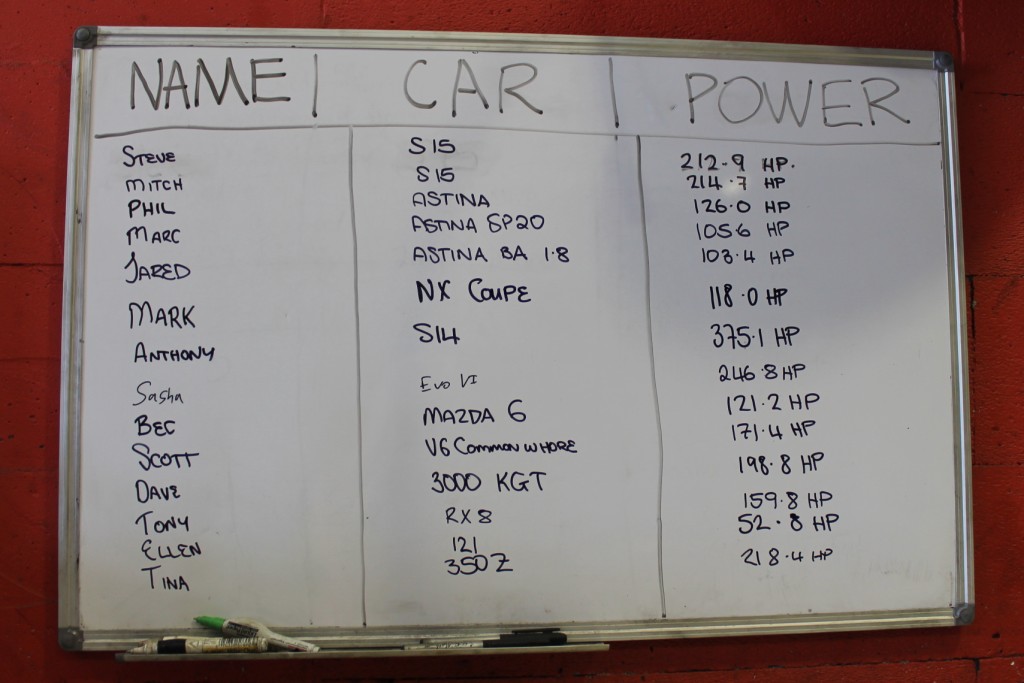 NAME | CAR | POWER
STEVE S15 212.9 HP.
MITCH S15 214.7 HP
PHIL ASTINA 126.0 HP
MARC ASTINA SP20 105.6 HP
JARED ASTINA BA 1.8 103.4 HP
MARK NX COUPE 118.0 HP
ANTHONY S14 375.1 HP
Sasha EVO VI 246.8 HP
BEC MAZDA 6 121.2 HP
SCOTT V6 COMMONWHORE 171.4 HP
DAVE 3000 KGT 198.8 HP
TONY RX8 159.8 HP
ELLEN 121 52.8 HP
TINA 350Z 218.4 HP